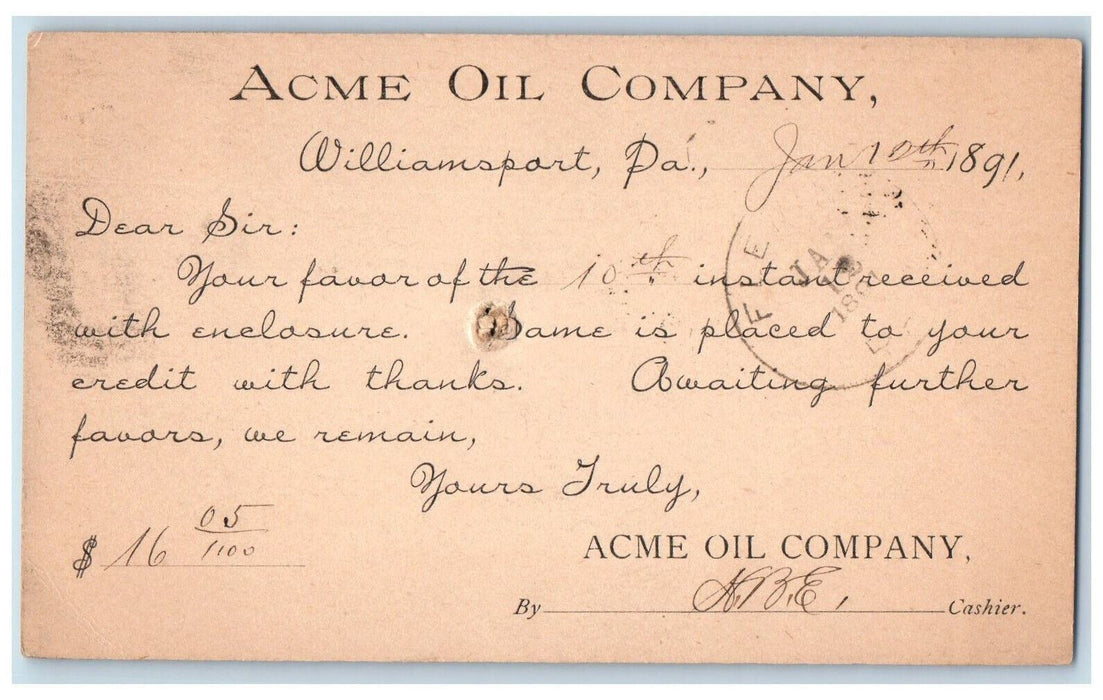 ACME OIL COMPANY,
Williamsport, Pa., Jan 10th 1891.
Dear Sir:
Your favor of the 10th instant received
with enclosure. Same is placed to your
credit with thanks. Awaiting further
favors, we remain,
Yours Truly,
$ 16 05/100
ACME OIL COMPANY,
By Cashier.